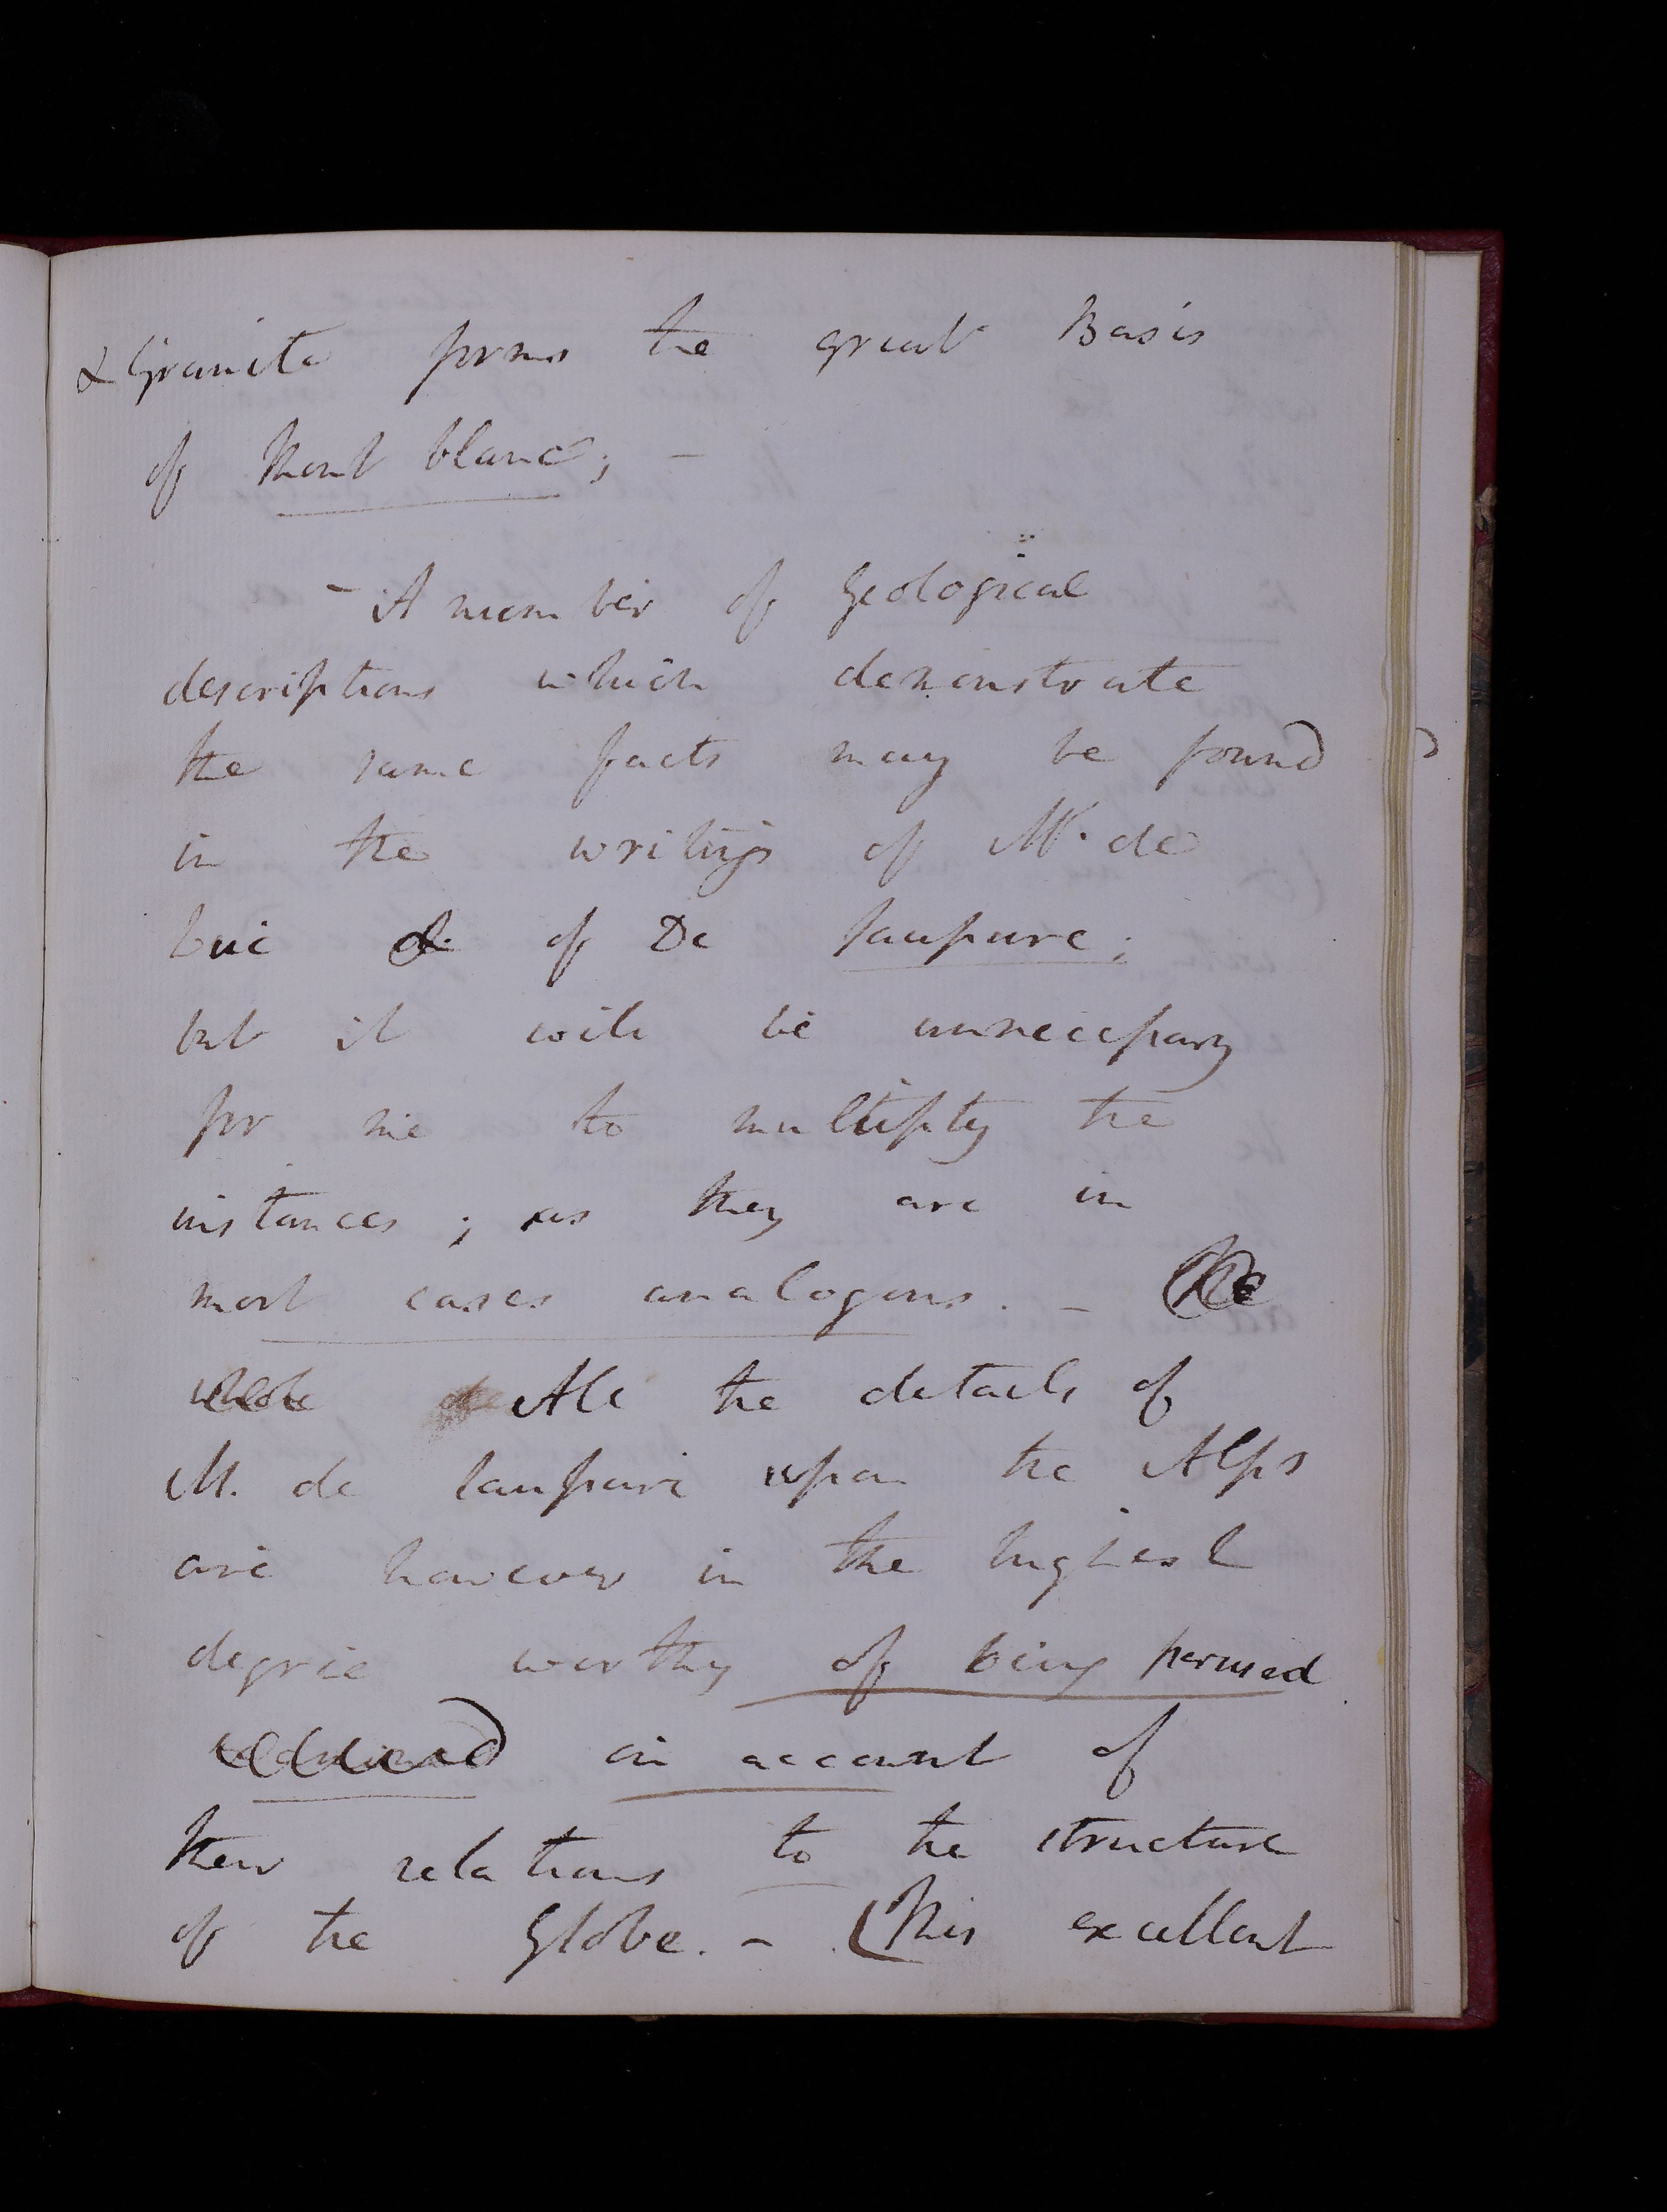 & Granite forms the great Basis
of Mont blanc; -
- A number of Geological
descriptions which demonstrate
the same facts may be found
in the writings of Mr. de
Luc & of De Saussure;
but it will be unnecessary
for me to multiply the
instances; as they are in
most cases analogous. - The
whole of All the details of
M. de Saussure upon the Alps
are however in the highest
degree worthy of being perused
on account of
their relations to the structure
of the Globe. - (This excellent